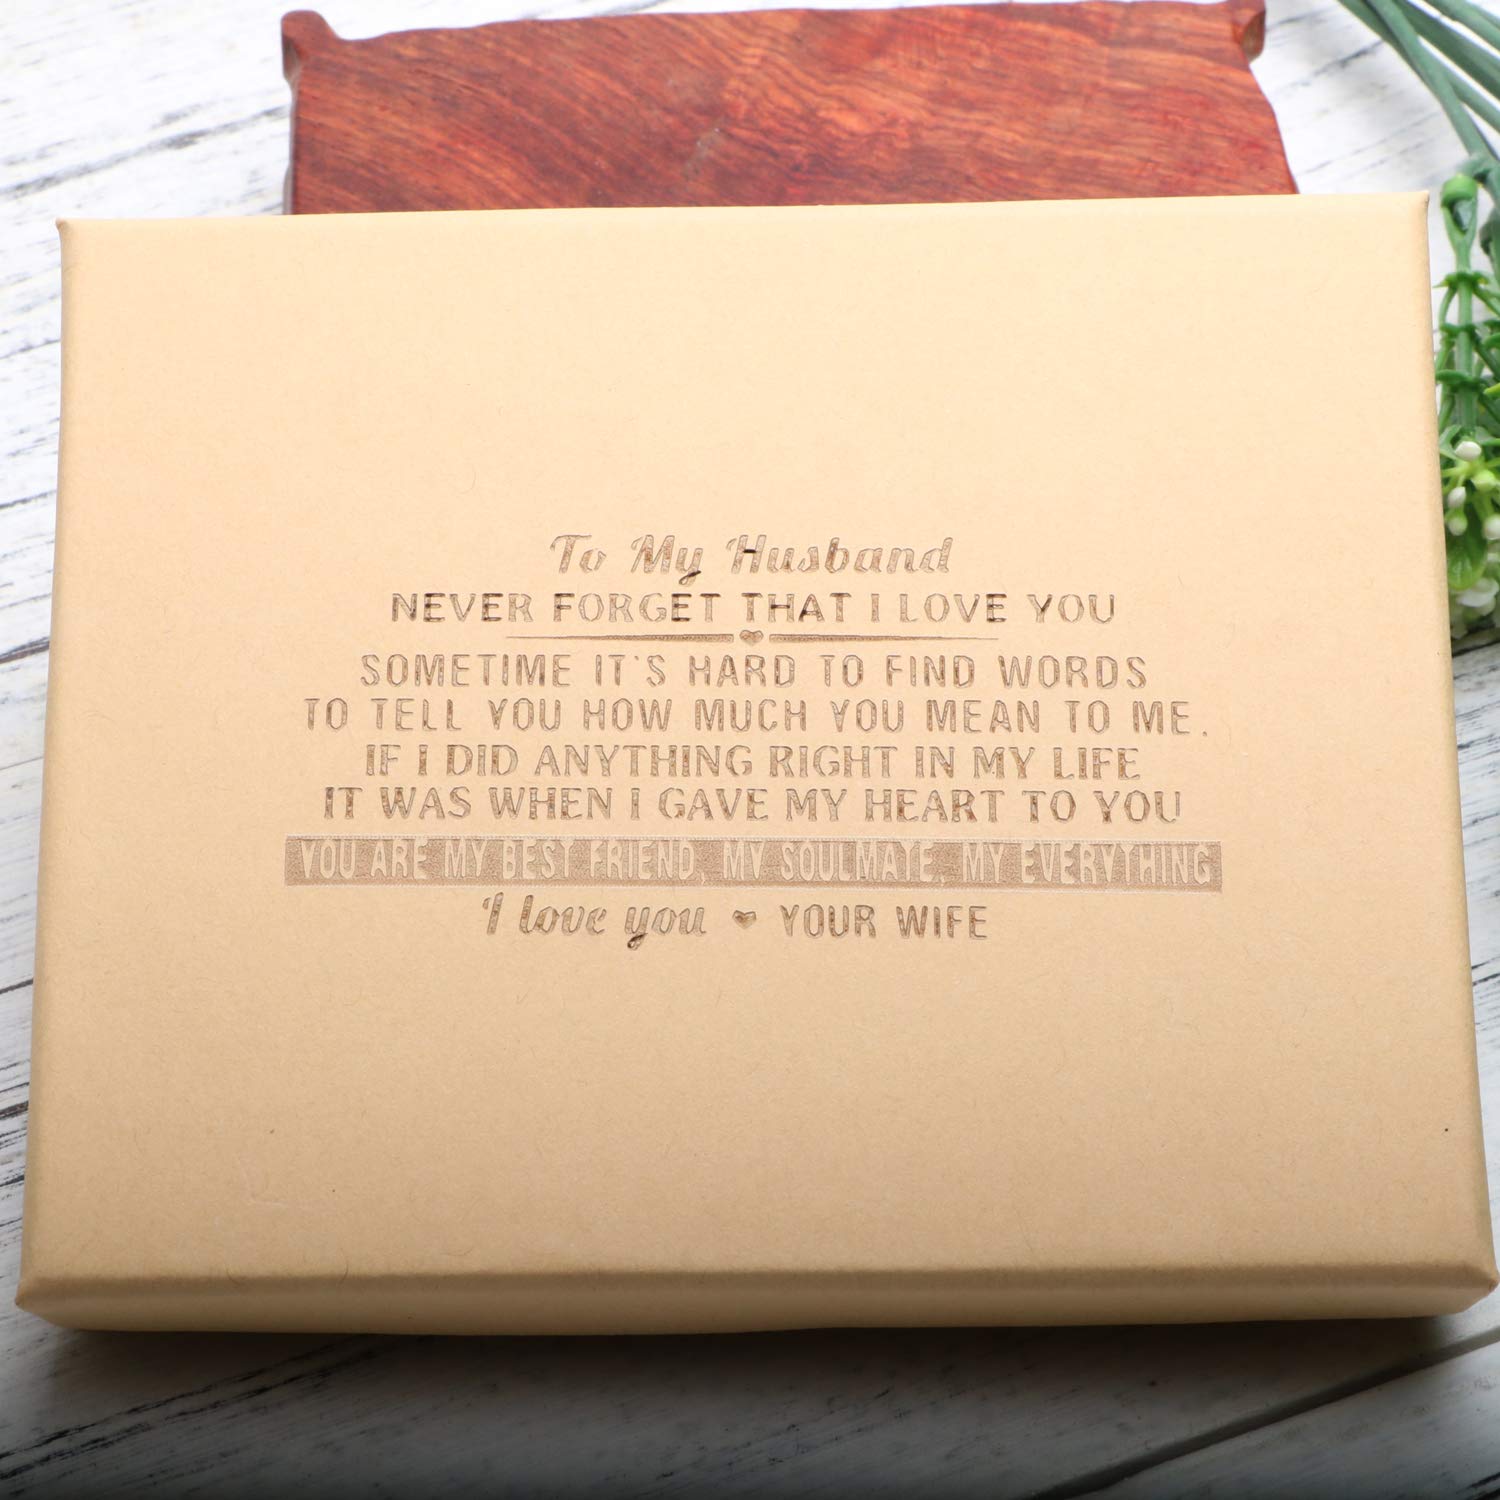 To My Husband
NEVER FORGET THAT I LOVE YOU
SOMETIME IT'S HARD TO FIND WORDS
TO TELL YOU HOW MUCH YOU MEAN TO ME.
IF I DID ANYTHING RIGHT IN MY LIFE
IT WAS WHEN I GAVE MY HEART TO YOU
YOU ARE MY BEST FRIEND, MY SOULMATE, MY EVERYTHING
I love you ♥ YOUR WIFE